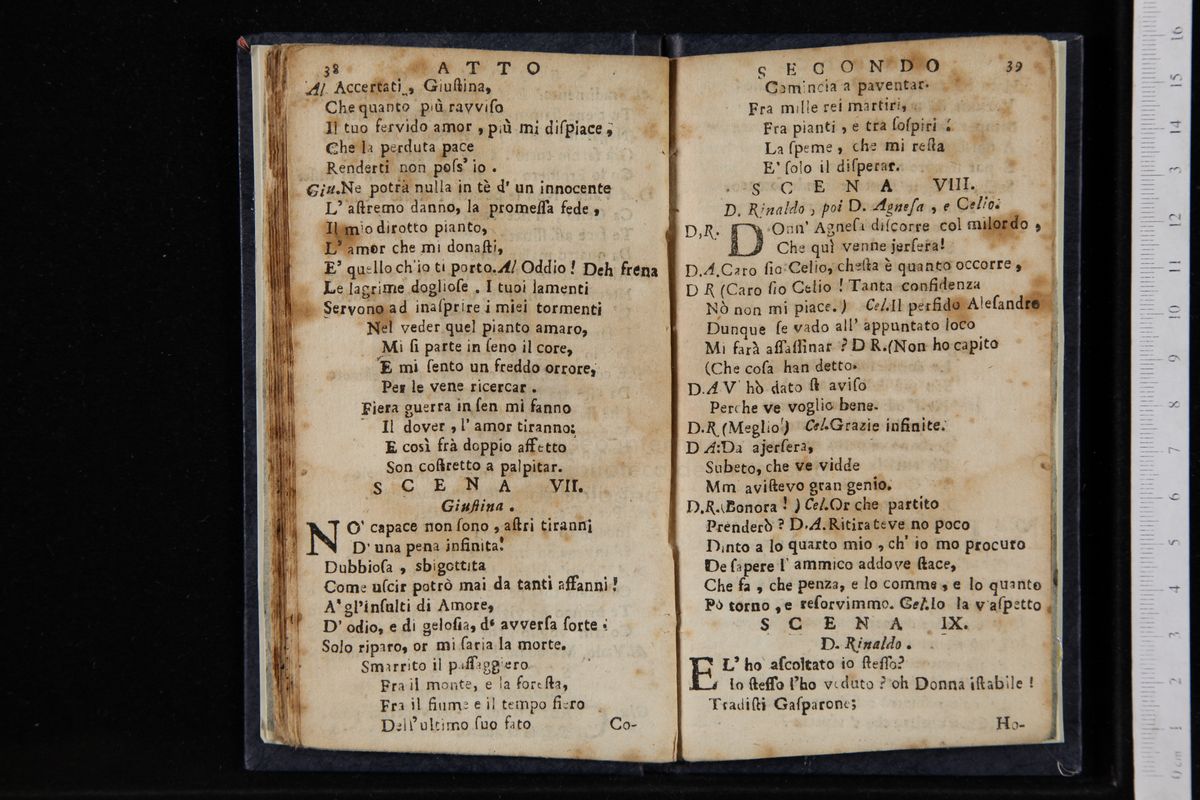 38 ATTO
Al Accertati, Giuſtina,
Che quanto più ravviſo
Il tuo fervido amor, più mi diſpiace,
Che la perduta pace
Renderti non poſs' io.
Giu. Ne potrà nulla in tè d' un innocente
L' aſtremo danno, la promeſſa fede,
Il mio dirotto pianto,
L' amor che mi donaſti,
E' quello ch'io ti porto. Al Oddio! Deh frena
Le lagrime doglioſe. I tuoi lamenti
Servono ad inaſprire i miei tormenti
Nel veder quel pianto amaro,
Mi ſi parte in ſeno il core,
E mi ſento un freddo orrore,
Per le vene ricercar.
Fiera guerra in ſen mi fanno
Il dover, l' amor tiranno:
E così frà doppio affetto
Son coſtretto a palpitar.
SCENA VII.
Giuſtina.
NO' capace non ſono, aſtri tiranni
D' una pena infinita!
Dubbioſa, sbigottita
Come uſcir potrò mai da tanti affanni!
A' gl'inſulti di Amore,
D' odio, e di geloſia, d' avverſa ſorte:
Solo riparo, or mi ſaria la morte.
Smarrito il paſſaggiero
Fra il monte, e la foreſta,
Fra il fiume e il tempo fiero
Dell' ultimo ſuo fato
Co-
SECONDO 39
Comincia a paventar.
Fra mille rei martiri,
Fra pianti, e tra ſoſpiri:
La ſpeme, che mi reſta
E' ſolo il diſperar.
SCENA VIII.
D. Rinaldo, poi D. Agneſa, e Celio.
D,R. DOnn' Agneſa diſcorre col milordo,
Che quì venne jerſera!
D.A. Caro ſio Celio, cheſta è quanto occorre,
D R (Caro ſio Celio! Tanta confidenza
Nò non mi piace.) Cel. Il perfido Aleſandro
Dunque ſe vado all' appuntato loco
Mi farà aſſaſſinar? D R. (Non ho capito
(Che coſa han detto.
D.A V' hò dato ſt aviſo
Perche ve voglio bene.
D.R (Meglio!) Cel. Grazie infinite.
D A: Da ajerſera,
Subeto, che ve vidde
Mm aviſtevo gran genio.
D.R. (Bonora!) Cel. Or che partito
Prenderò? D.A. Ritirateve no poco
Dinto a lo quarto mio, ch' io mo procuro
De ſapere l' ammico addove ſtace,
Che fa, che penza, e lo comme, e lo quanto
Pò torno, e reſorvimmo. Cel. Io la v'aſpetto
SCENA IX.
D. Rinaldo.
EL' ho aſcoltato io ſteſſo?
Io ſteſſo l'ho veduto? oh Donna iſtabile!
Tradiſti Gaſparone;
Ho-